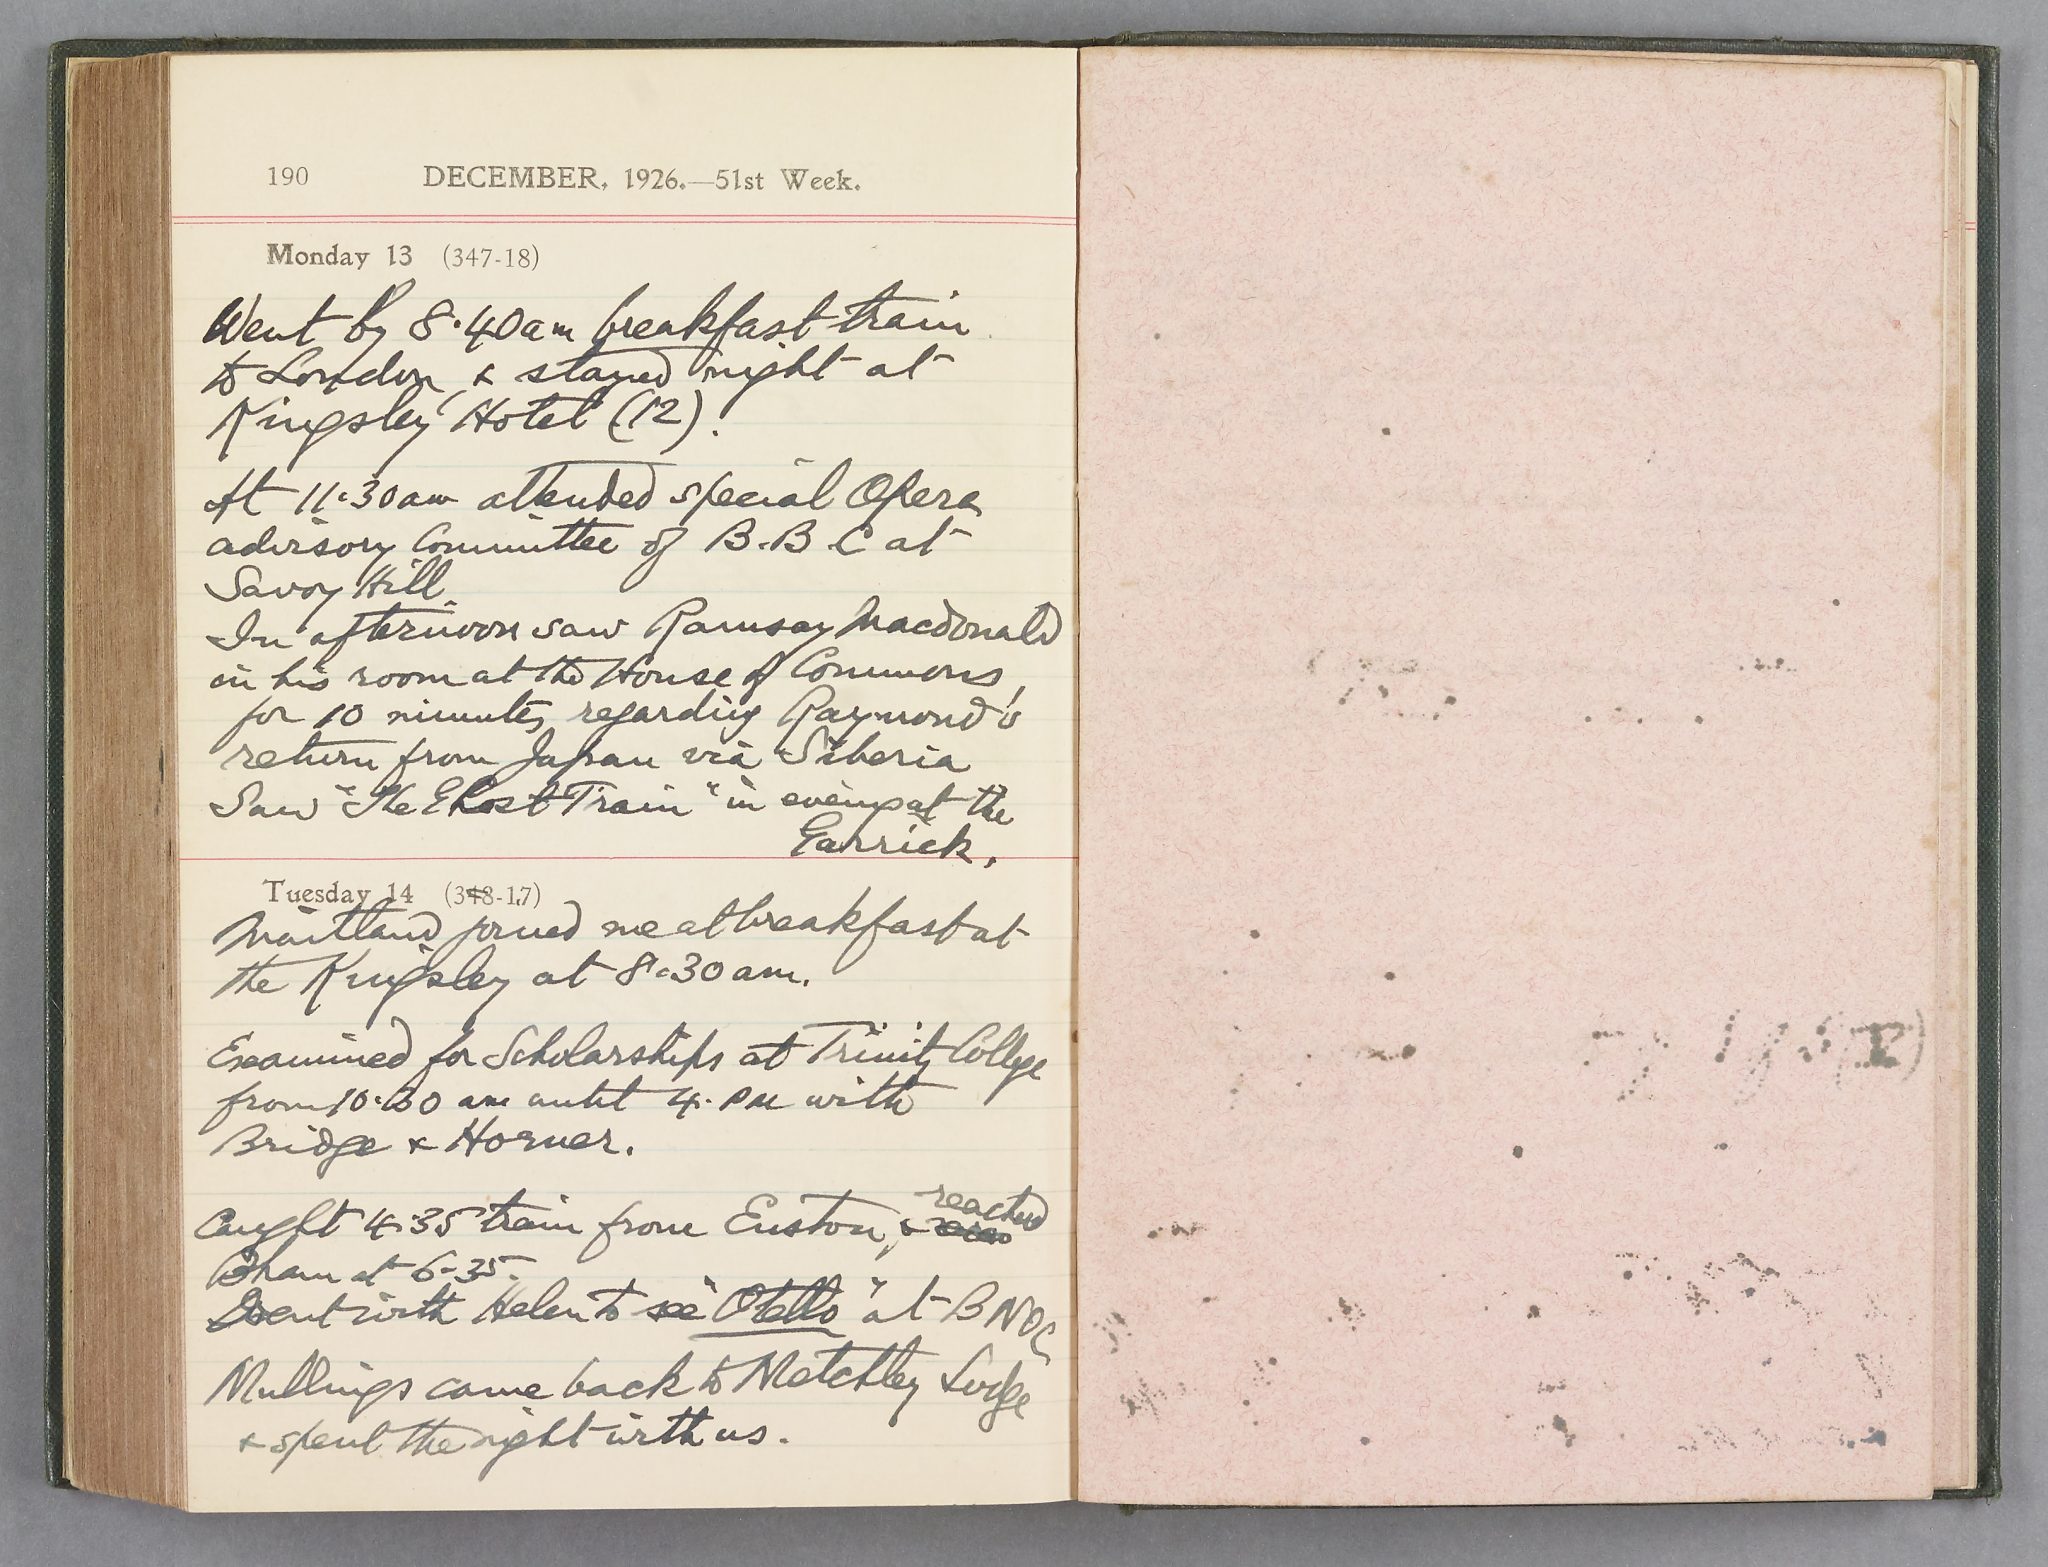 190 DECEMBER, 1926.—51st Week.
Monday 13 (347-18)
Went by 8.40am breakfast train
to London, & stayed night at
Kingsley Hotel (12).
At 11.30am attended special Opera
advisory Committee of B.B.C at
Savoy Hill
In afternoon saw Ramsay Macdonald
in his room at the House of Commons,
for 10 minutes, regarding Raymond's
return from Japan via Siberia
Saw "The Ghost Train" in evening at the
Garrick.
Tuesday 14 (348-17)
Maitland joined me at breakfast at
the Kingsley at 8.30 am.
Examined for Scholarships at Trinity College
from 10.30 am until 4. pm with
Bridge & Horner.
reached
Caught 4.35 train from Euston, &
Bham at 6-35.
Went with Helen to see "Otello" at BNOC
Mullings came back to Metchley Lodge
& spent the night with us.